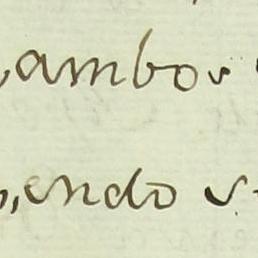 ambos
endo